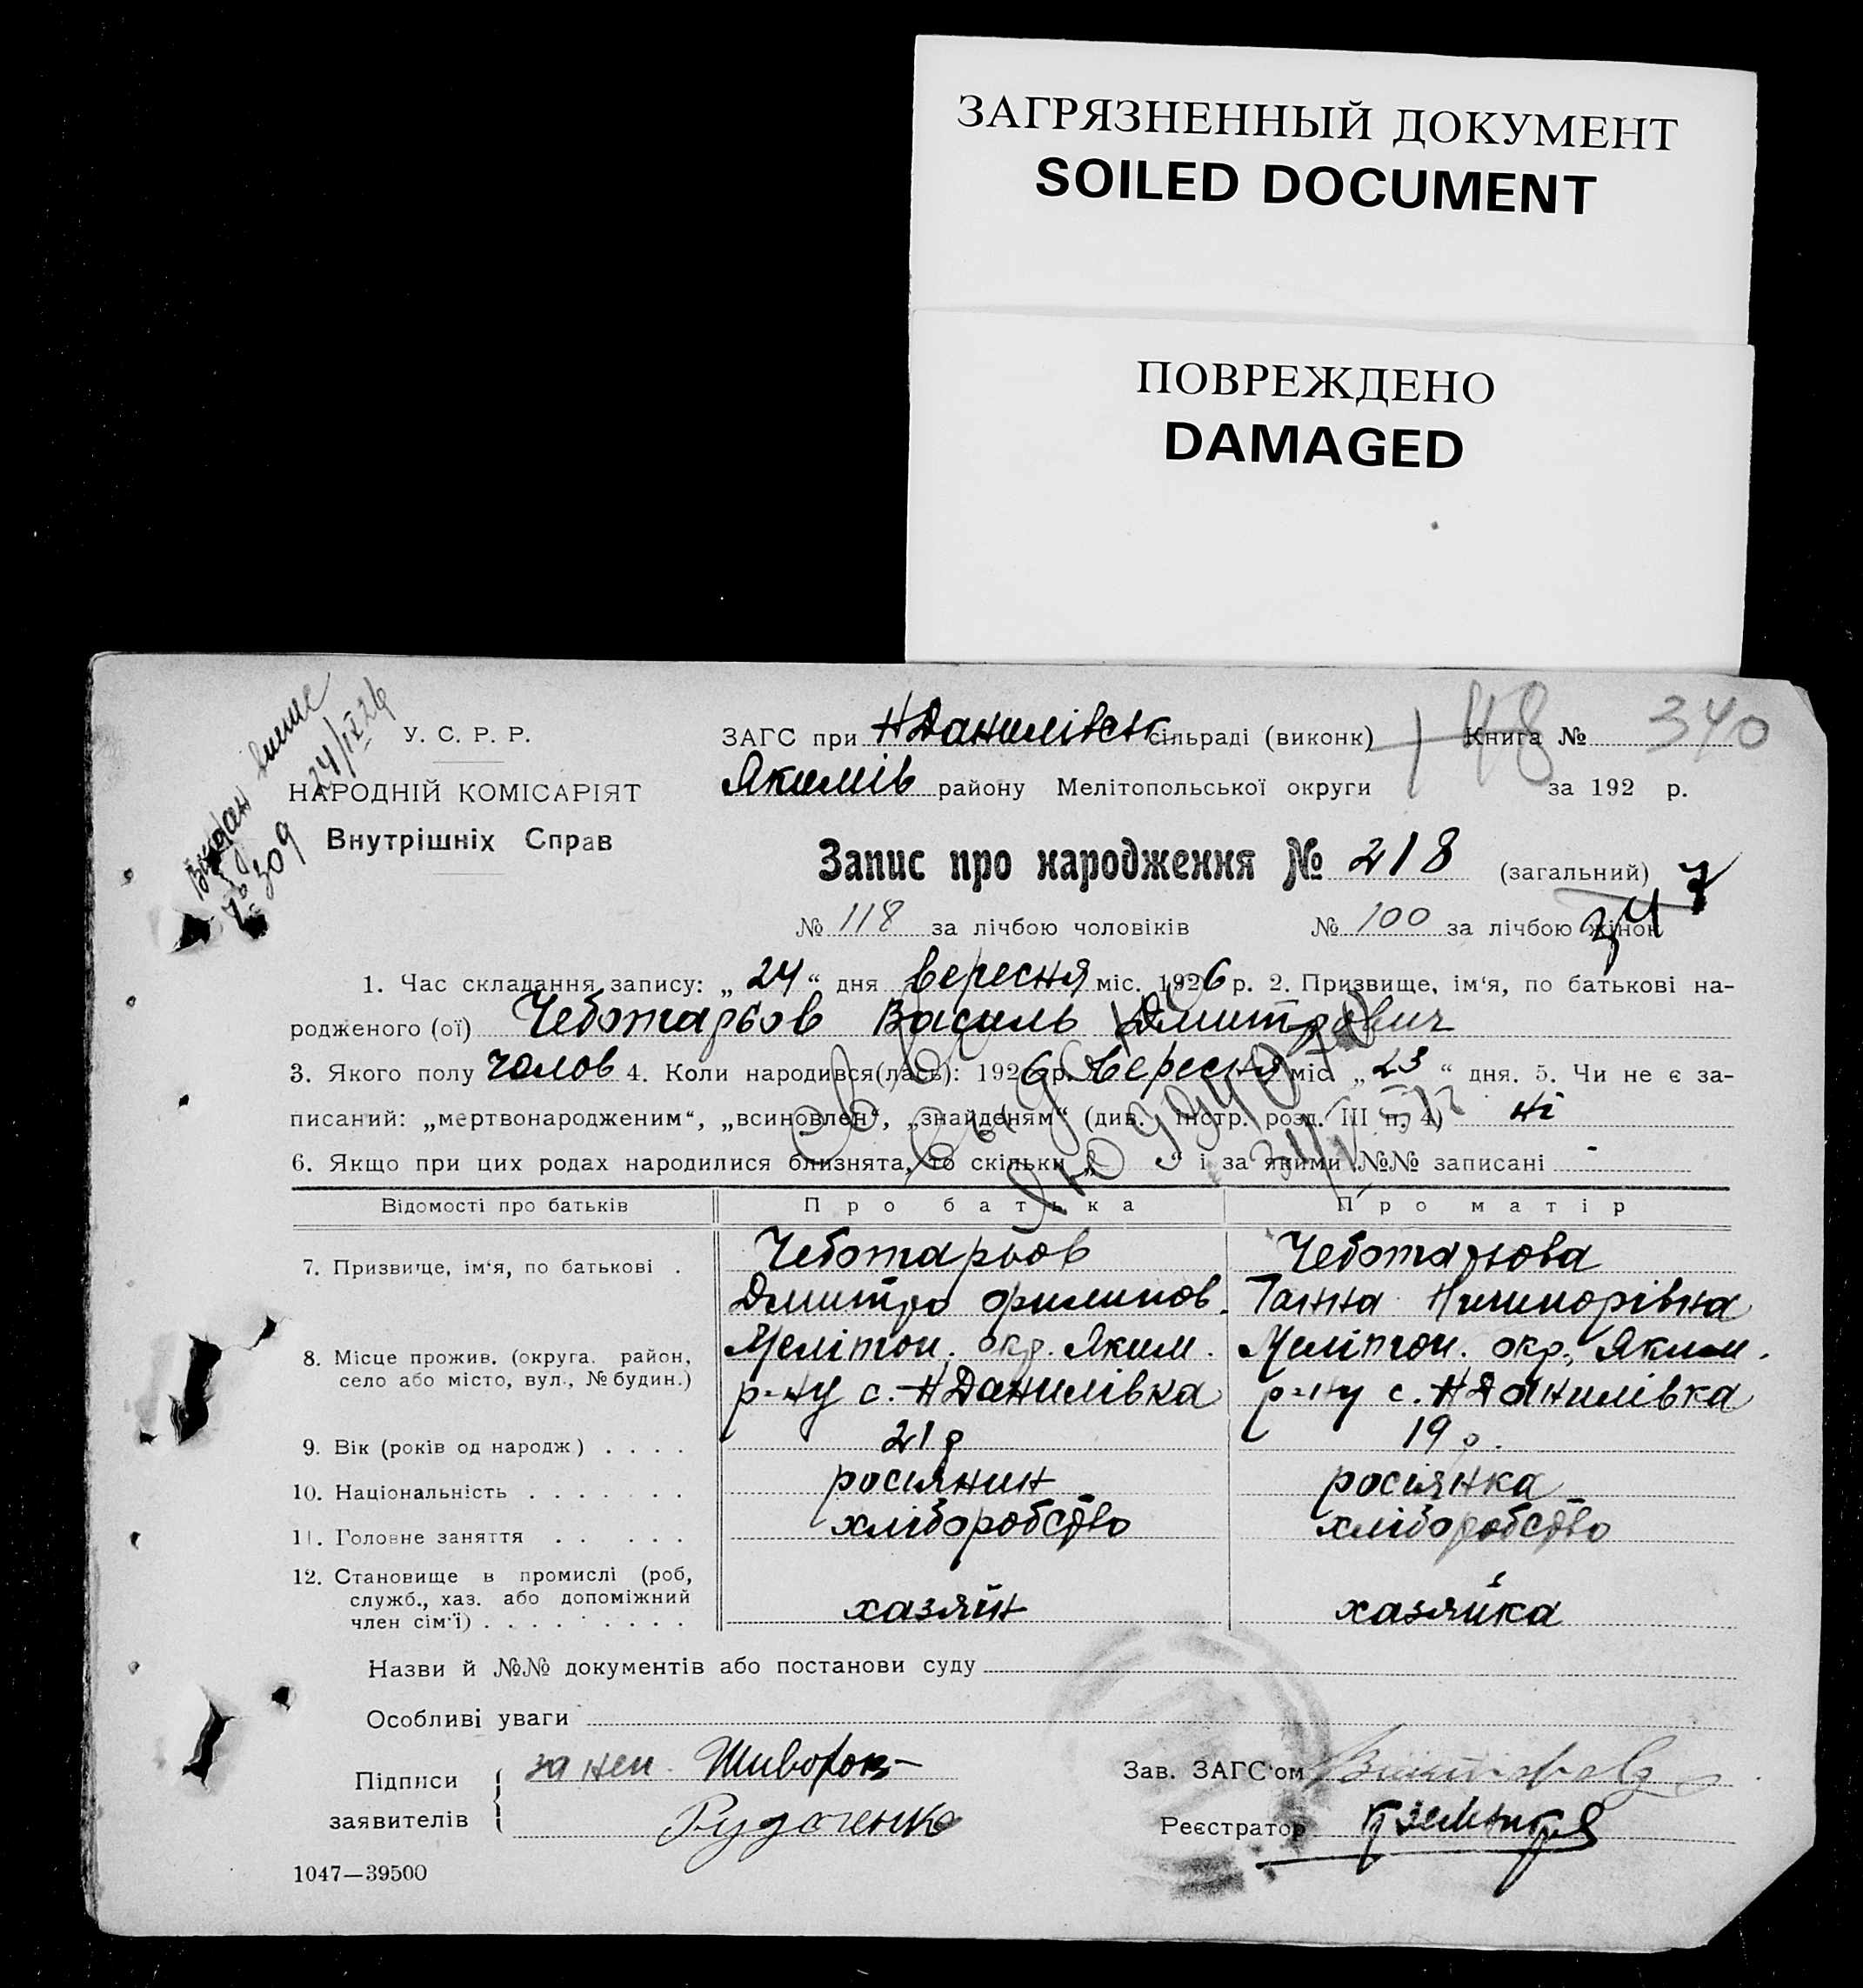 ЗАГРЯЗНЕННЫЙ ДОКУМЕНТ
SOILED DOCUMENT
ПОВРЕЖДЕНО
DAMAGED
24/IX 26
№ 309
У. С. Р. Р.
НАРОДНІЙ КОМІСАРІЯТ
Внутрішніх Справ
ЗАГС при Н Данилівськ сільраді (виконк) Книга № 340
148
Якимів району Мелітопольської округи за 192 р.
Запис про народження № 218 (загальний)
№ 118 за лічбою чоловіків № 100 за лічбою жінок
1. Час складання запису: „ 24 “ дня вересня міс. 1926 р. 2. Призвище, ім‘я, по батькові на-
родженого (ої) Чеботарьов Василь Дмитрович
3. Якого полу чолов 4. Коли народився(лась): 1926 р. вересня міс. „ 23 “ дня. 5. Чи не є за-
писаний: „мертвонародженим“, „всиновлен“, „знайденям“ (див. інстр. розд. III п. 4) ні
6. Якщо при цих родах народилися близнята, то скільки „ “ і за якими №№ записані -
Відомості про батьків Про батька Про матір
7. Призвище, ім‘я, по батькові . Чеботарьов Чеботарьова
Дмитро Филипов. Ганна Ничипорівна
8. Місце прожив. (округа. район, Мелітоп. окр. Яким. Мелітоп. окр., Яким.
село або місто, вул., № будин.) р-ну с. Н Данилівка р-ну с. Н Данилівка
9. Вік (років од народж) . . . . 21 р 19 р.
10. Національність . . . . . . . росіянин росіянка
11. Головне заняття . . . . . хліборобство хліборобство
12. Становище в промислі (роб,
служб., хаз. або допоміжний
член сім‘ї) . . . . . . . . хазяїн хазяйка
Назви й №№ документів або постанови суду
Особливі уваги
Підписи
заявителів
за неп.
Зав. ЗАГС‘ом
Реєстратор
1047—39500